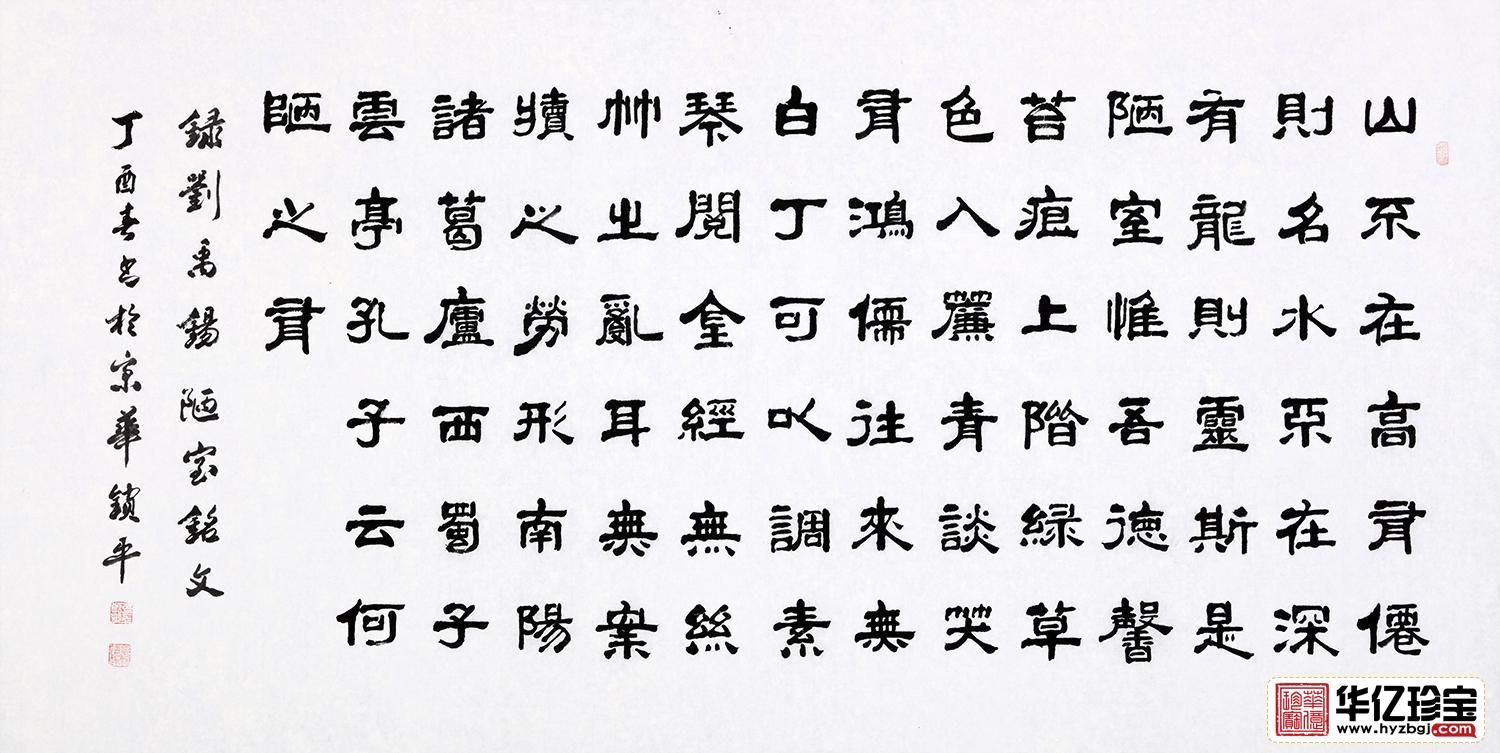 山不在高有僊
則名水不在深
有龍則靈斯是
陋室惟吾德馨
苔痕上階綠草
色入簾青談笑
有鴻儒往來無
白丁可以調素
琴閱金經無絲
竹之亂耳無案
牘之勞形南陽
諸葛廬西蜀子
雲亭孔子云何
陋之有
錄劉禹錫陋室銘文
丁酉春书於京華鎖平
华亿珍宝
www.hyzbgj.com